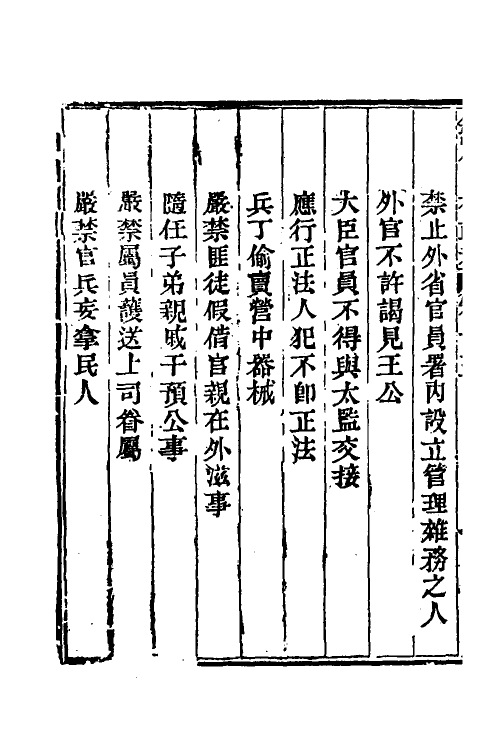 禁止外省官員署內設立管理雜務之人
外官不許謁見王公
大臣官員不得與太監交接
應行正法人犯不卽正法
兵丁偷賣營中器械
嚴禁匪徒假借官親在外滋事
隨任子弟親戚干預公事
嚴禁屬員護送上司眷屬
嚴禁官兵妄拿民人